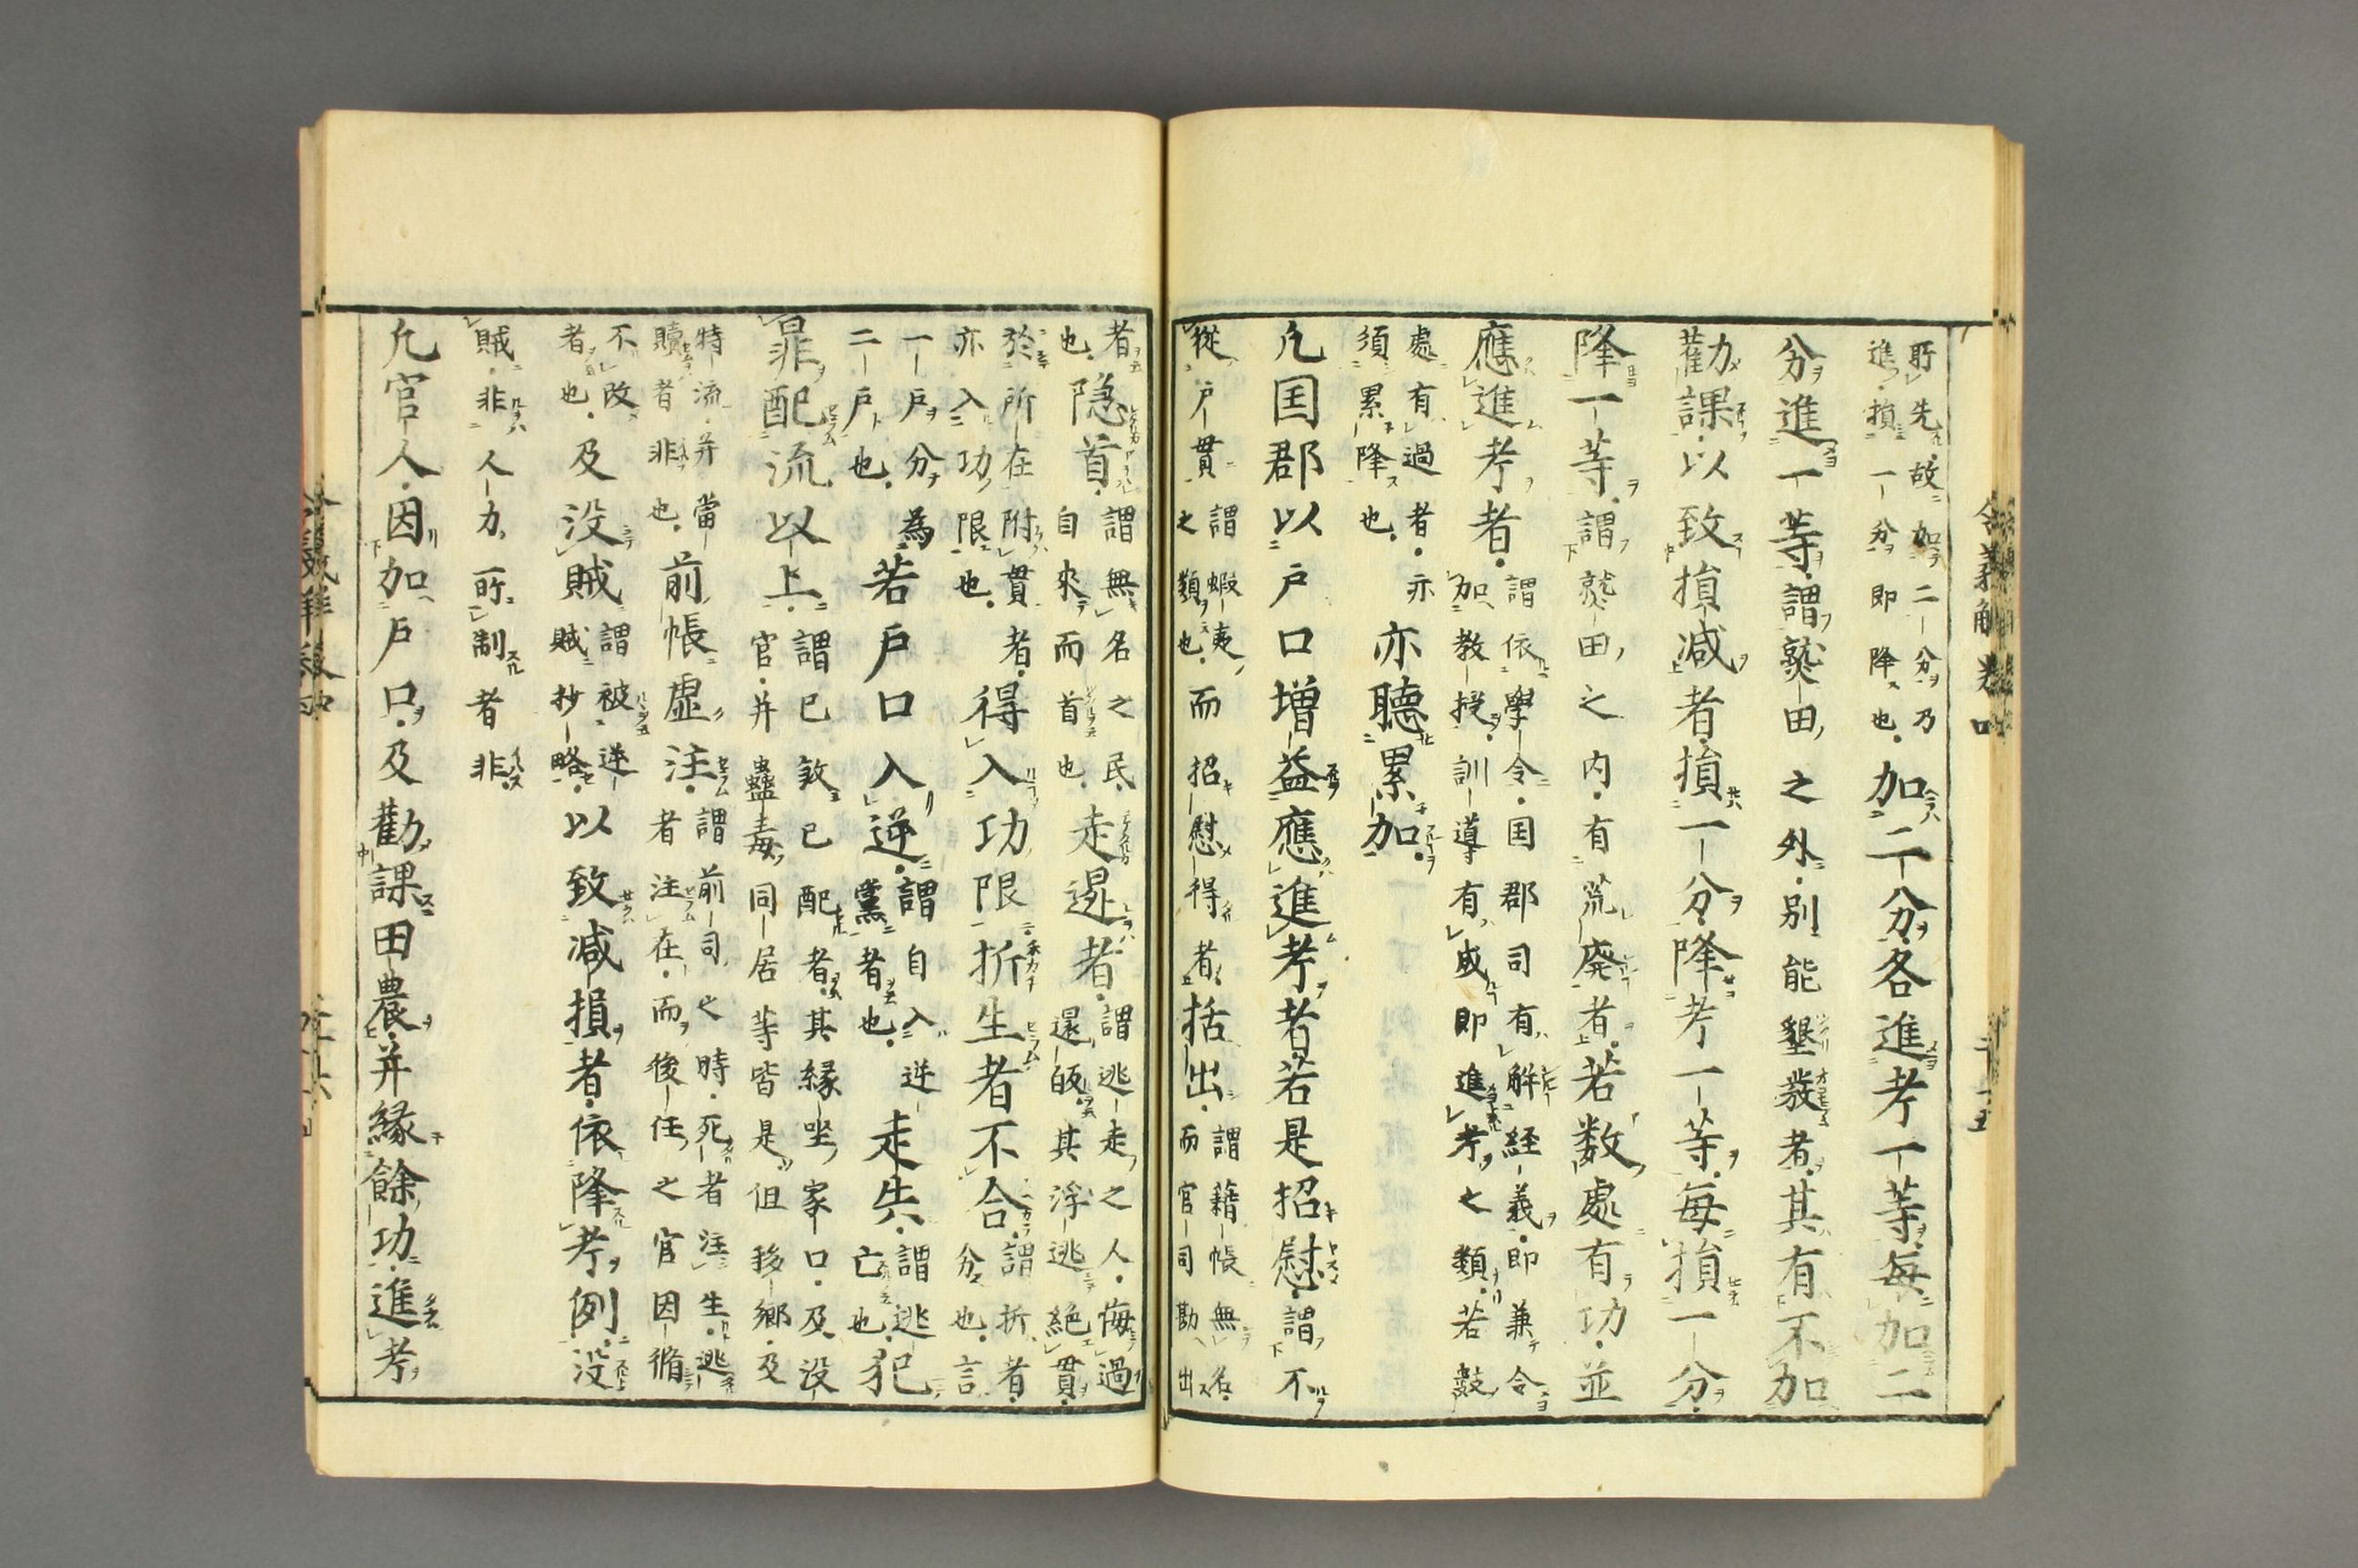 所先故如二分乃
進損一分即降也加二分各進考一等每加二
分進一等謂熟田之外別能墾發者其有不加
勸課以致損減者損一分降考一等每損一分
降一等謂熟田之内有荒廃者若数處有功並
應進考者謂依學令国郡司有解経義即兼令
加教授訓導有成即進考之類若數
處有過者亦
須累降也亦聽累加
凡国郡以戸口増益應進考者若是招慰謂不
從戸貫謂蝦夷
之類也而招慰得者括出謂籍帳無名
而官司勘出
者
也隠首謂無名之民
自來而首也走還者謂逃走之人悔過
還皈其浮逃絶貫
於所在附貫者
亦入功限也得入功限折生者不合謂折者
分也言
一戸分為
二戸也若戸口入逆謂自入逆
黨者也走失謂逃
亡也犯
罪配流以上謂已敘已配者其縁坐家口及没
官并蠱毒同居等皆是但移郷及
特流并當
贖者非也前帳虚注謂前司之時死者注生逃
者注在而後任之官因循
不改
者也及没賊謂被逆
賊抄略以致減損者依降考例没
賊非人力所制者非
凡官人因加戸口及勸課田農并縁餘功進考
令義解 巻四